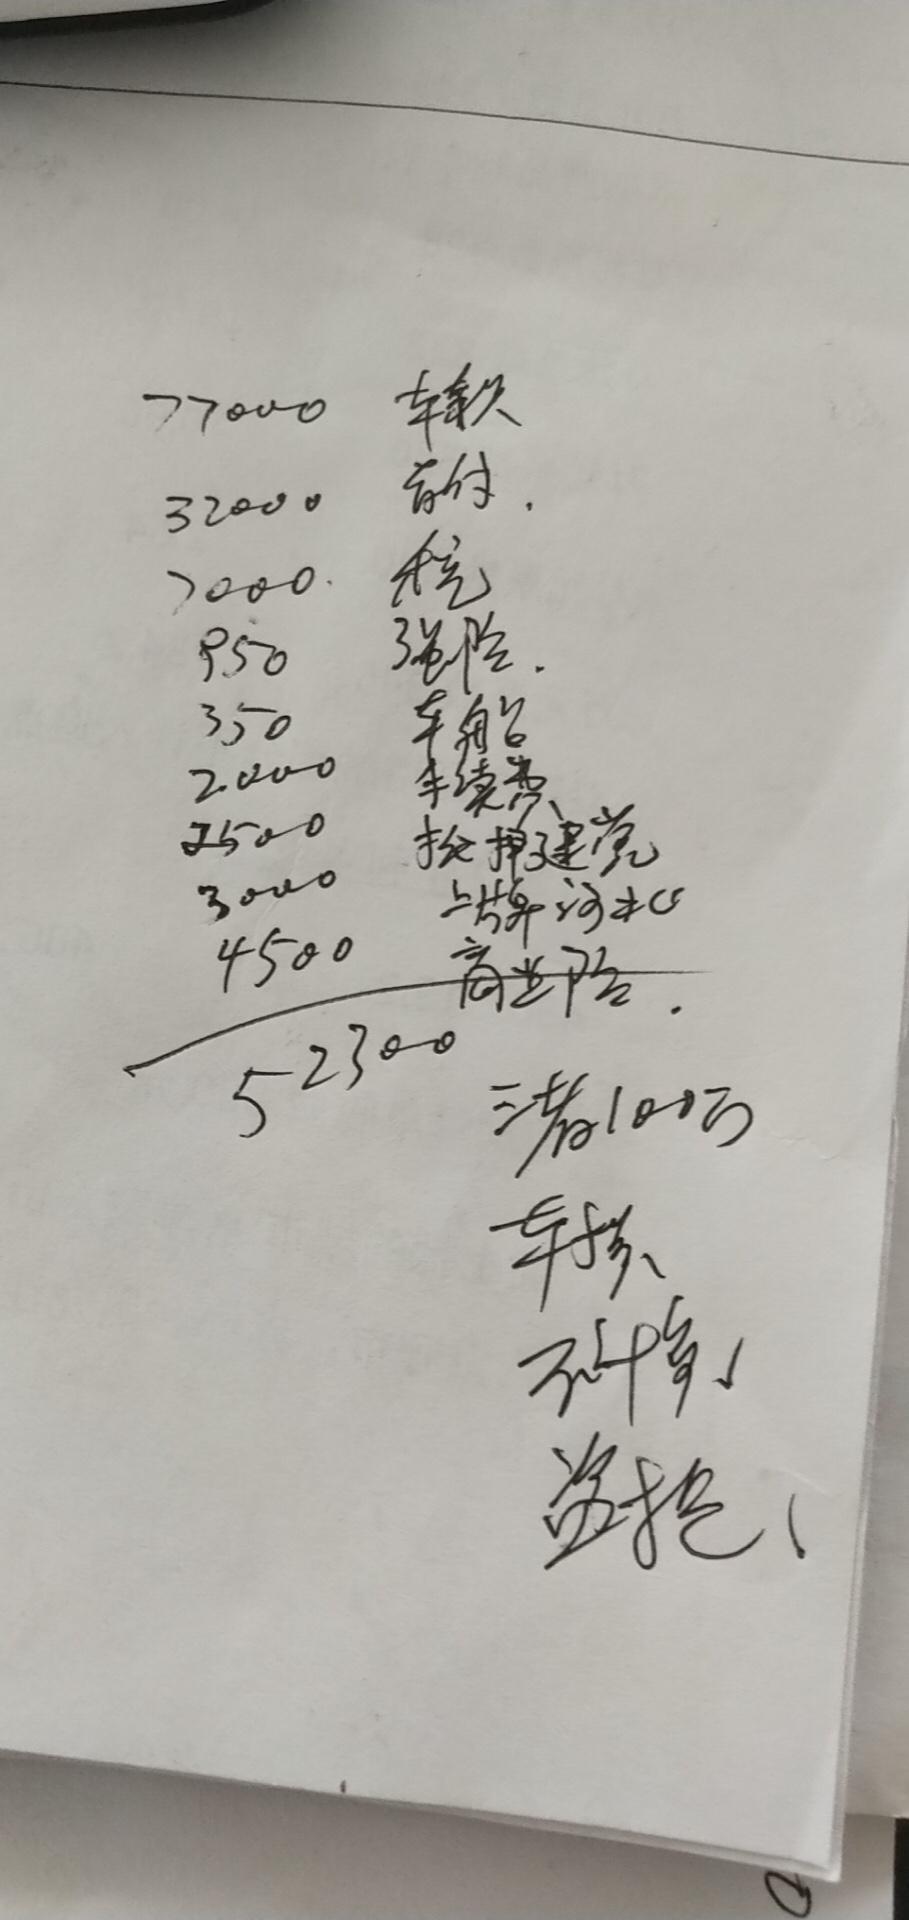 77000 车款
32000 首付.
7000. 税
950 强险.
350 车船
2000 手续费
2500 抵押建党
3000 上牌河北
4500 商业险.
52300
三者100万
车损、
不计免、
盗抢、